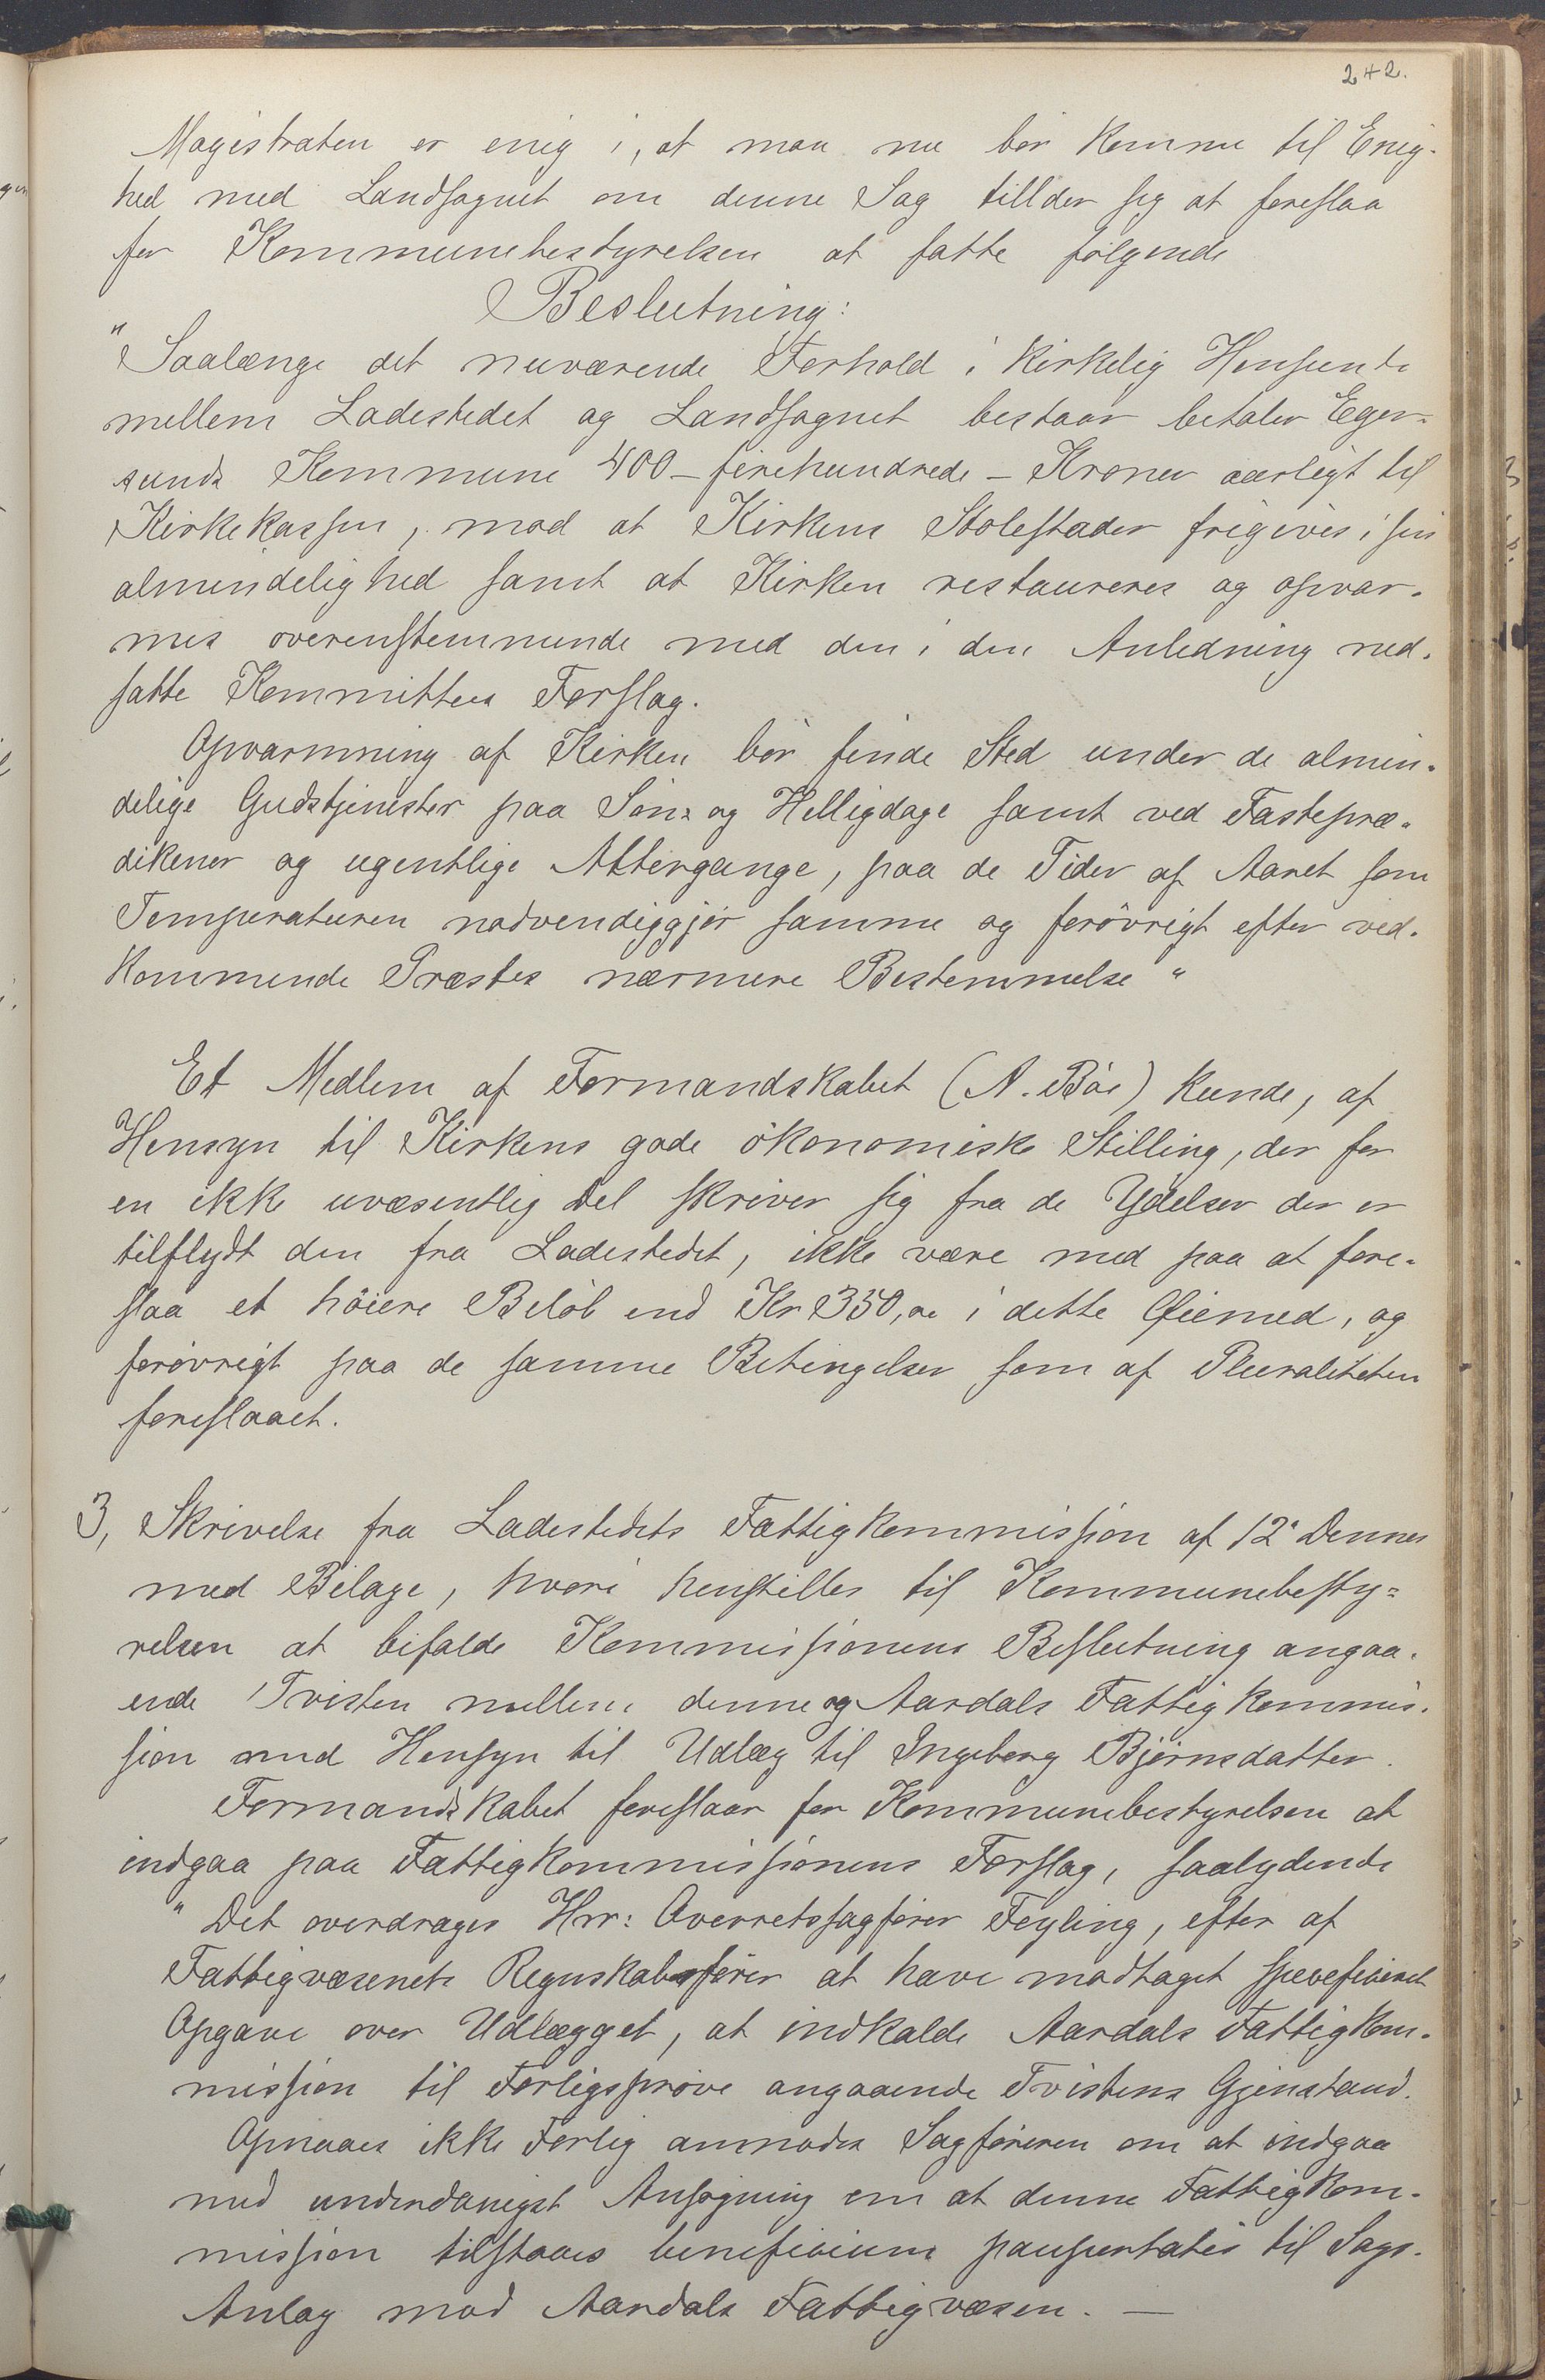 242.
Magistraten er enig i, at man nu bør komme til Enig-
hed med Landsognet om denne Sag tillader sig at foreslaa
for Kommunebestyrelsen at fatte følgende
Beslutning:
"Saalænge det nuværende Forhold i kirkelig Hensende
mellem Ladestedet og Landsognet bestaar betaler Eger-
sunds Kommune 400 - firehundrede - Kroner aarligt til
Kirkekassen, mod at Kirkens Stolestader frigives i sin
almindelighed samt at Kirken restaureres og opvar-
mes overensstemmende med den i den Anledning ned-
satte Kommittees Forslag.
Opvarmning af Kirken bør finde Sted under de almin-
delige Gudstjenester paa Søn- og Helligdage samt ved Fastepræ-
dikener og ugentlige Altergange, paa de Tider af Aaret som
Temperaturen nødvendiggjør samme og forøvrigt efter ved-
kommende Præstes nærmere Bestemmelse"
Et Medlem af Formandskabet (A. Böe) kunde, af
Hensyn til Kirkens gode økonomiske Stilling, der for
en ikke uvæsentlig Del skriver sig fra de Ydelser der er
tilflydt den fra Ladestedet, ikke være med paa at fore-
slaa et høiere Beløb end Kr 350,00 i dette Øiemed, og
forøvrigt paa de samme Betingelser som af Pluraliteten
foreslaaet.
3, Skrivelse fra Ladestedets Fattigkommission af 12' Dennes
med Bilage, hvori henstilles til Kommunebesty-
relsen at bifalde Kommissionens Beslutning angaa-
ende Tvisten mellem denne og Aardals Fattigkommis-
sion med Hensyn til Udlæg til Ingeborg Bjørnsdatter.
Formandskabet foreslaar for Kommunebestyrelsen at
indgaa paa Fattigkommissionens Forslag, saalydende
"Det overdrages Hrr: Overretssagfører Feyling, efter af
Fattigvæsenets Regnskabsfører at have modtaget specificeret
Opgave over Udlægget, at indkalde Aardals Fattigkom-
mission til Forligsprøve angaaende Tvistens Gjenstand.
Opnaaes ikke Forlig anmodes Sagføreren om at indgaa
med underdanigst Ansøgning om at denne Fattigkom-
mission tilstaaes beneficium paupertatis til Sags-
Anlæg mod Aardals Fattigvæsen. —